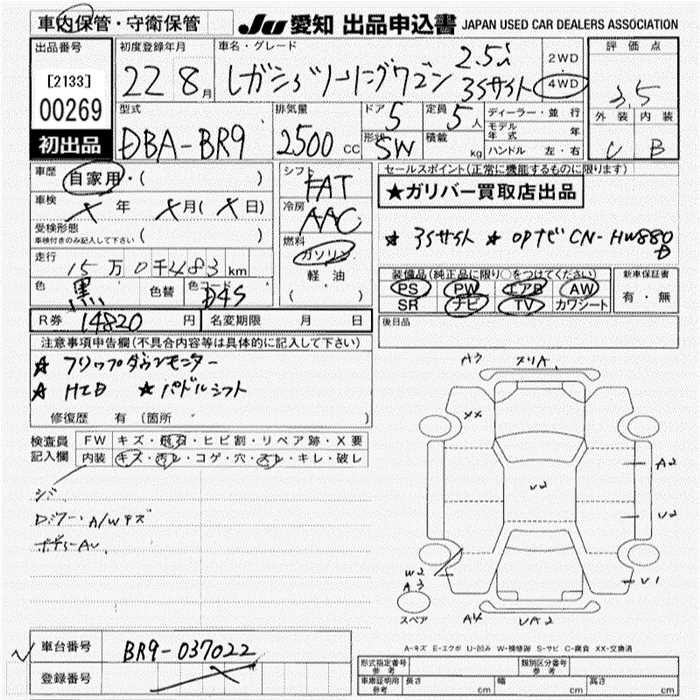 車内保管・守衛保管
JU 愛知 出品申込書 JAPAN USED CAR DEALERS ASSOCIATION
出品番号
[2133]
00269
初出品
初度登録年月
22 8月
車名・グレード
レガシィツーリングワゴン 2.5i
3Sサイト
2WD
4WD
評価点
3.5
外装 内装
C B
型式
DBA-BR9
排気量
2500 CC
ドア 5
定員 5人
形状 SW
積載 kg
ディーラー・並行
モデル年式 年
ハンドル 左・右
車歴 自家用・( )
車検 X年 X月(X日)
受検形態
車検付きのみ記入して下さい ( )
走行 15万0千483km
色 黒 色替 色コード D4S
シフト FAT
冷房 AAC
燃料 ガソリン
軽油
( ・ )
セールスポイント(正常に機能するものに限ります)
★ガリバー買取店出品
★ 3Sサイト ★ OPナビ CN-HW880D
装備品(純正品に限り○をつけてください)
PS PW エアB AW
SR ナビ TV カワシート
新車保証書
有・無
後日品
R券 14820円 名変期限 月 日
注意事項申告欄(不具合内容等は具体的に記入して下さい)
★ フリップダウンモニター
★ HID ★ パドルシフト
修復歴 有 (箇所 )
検査員記入欄
FW キズ・飛石・ヒビ割・リペア跡・X要
内装 キズ・汚レ・コゲ・穴・スレ・キレ・破レ
A3 スリA
XX
A2
U2
U2
W2
A3
U1
スペア
A4 UA2
A-キズ E-エクボ U-凹み W-補修跡 S-サビ C-腐食 XX-交換済
車台番号 BR9-037022
登録番号
形式指定番号 参考
類別区分番号 参考
車庫証明用 参考
長さ cm 幅 cm 高さ cm